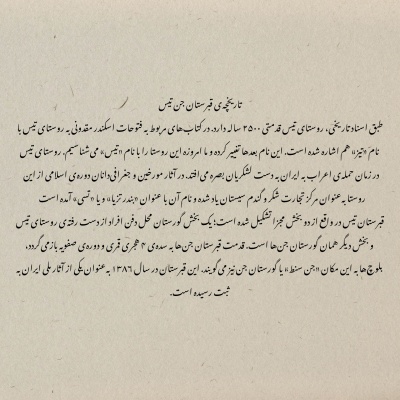 تاریخچه‌ی قبرستان جن تیس
طبق اسناد تاریخی، روستای تیس قدمتی ۲۵۰۰ ساله دارد. در کتاب‌های مربوط به فتوحات اسکندر مقدونی به روستای تیس با
نام «تیز» هم اشاره شده است. این نام بعدها تغییر کرده و ما امروزه این روستا را با نام «تیس» می‌شناسیم. روستای تیس
در زمان حمله‌ی اعراب به ایران به دست لشکریان بصاره می‌افتد. در آثار مورخین و جغرافی‌دانان دوره‌ی اسلامی از این
روستا به‌عنوان مرکز تجارت شکر و گندم سیستان یاد شده و نام آن با عنوان «بندر تزیا» و یا «تسی» آمده است
قبرستان تیس در واقع از دو بخش مجزا تشکیل شده است: یک بخش گورستان محل دفن افراد از دست رفته‌ی روستای تیس
و بخش دیگر همان گورستان جن‌ها است. قدمت قبرستان جن‌ها به سده‌ی ۴ هجری قمری و دوره‌ی صفویه بازمی‌گردد،
بلوچ‌ها به این مکان «جن سنط» یا گورستان جن نیز می‌گویند. این قبرستان در سال ۱۳۸۶ به‌عنوان یکی از آثار ملی ایران به
ثبت رسیده است.